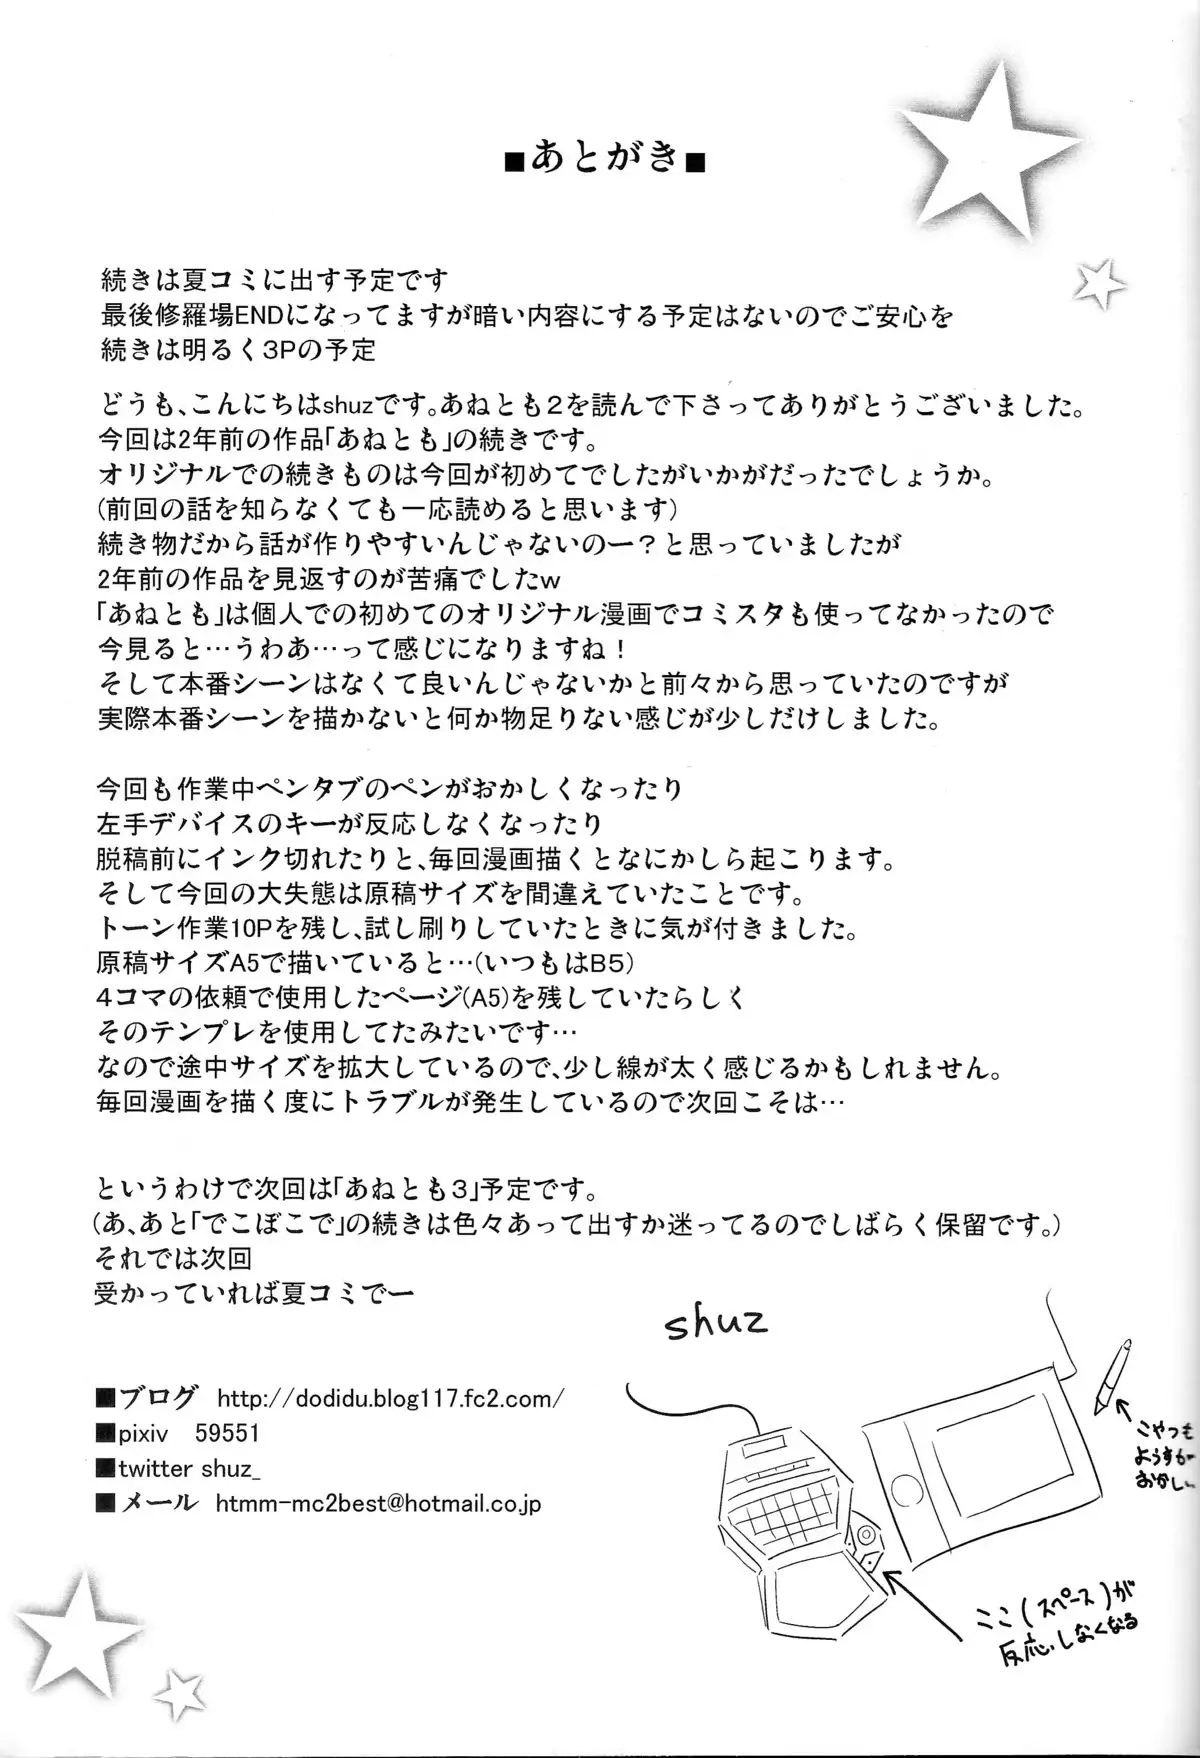 ■あとがき■
続きは夏コミに出す予定です
最後修羅場ENDになってますが暗い内容にする予定はないのでご安心を
続きは明るく3Pの予定
どうも、こんにちはshuzです。あねとも2を読んで下さってありがとうございました。
今回は2年前の作品「あねとも」の続きです。
オリジナルでの続きものは今回が初めてでしたがいかがだったでしょうか。
(前回の話を知らなくても一応読めると思います)
続き物だから話が作りやすいんじゃないのー？と思っていましたが
2年前の作品を見返すのが苦痛でしたw
「あねとも」は個人での初めてのオリジナル漫画でコミスタも使ってなかったので
今見ると…うわあ…って感じになりますね！
そして本番シーンはなくて良いんじゃないかと前々から思っていたのですが
実際本番シーンを描かないと何か物足りない感じが少しだけしました。
今回も作業中ペンタブのペンがおかしくなったり
左手デバイスのキーが反応しなくなったり
脱稿前にインク切れたりと、毎回漫画描くとなにかしら起こります。
そして今回の大失態は原稿サイズを間違えていたことです。
トーン作業10Pを残し、試し刷りしていたときに気が付きました。
原稿サイズA5で描いていると…(いつもはB5)
4コマの依頼で使用したページ(A5)を残していたらしく
そのテンプレを使用してたみたいです…
なので途中サイズを拡大しているので、少し線が太く感じるかもしれません。
毎回漫画を描く度にトラブルが発生しているので次回こそは…
というわけで次回は「あねとも3」予定です。
(あ、あと「でこぼこで」の続きは色々あって出すか迷ってるのでしばらく保留です。)
それでは次回
受かっていれば夏コミでー
shuz
■ブログ http://dodidu.blog117.fc2.com/
■pixiv 59551
■twitter shuz_
■メール htmm-mc2best@hotmail.co.jp
こやつも
ようすが
おかしい
ここ(スペース)が
反応しなくなる